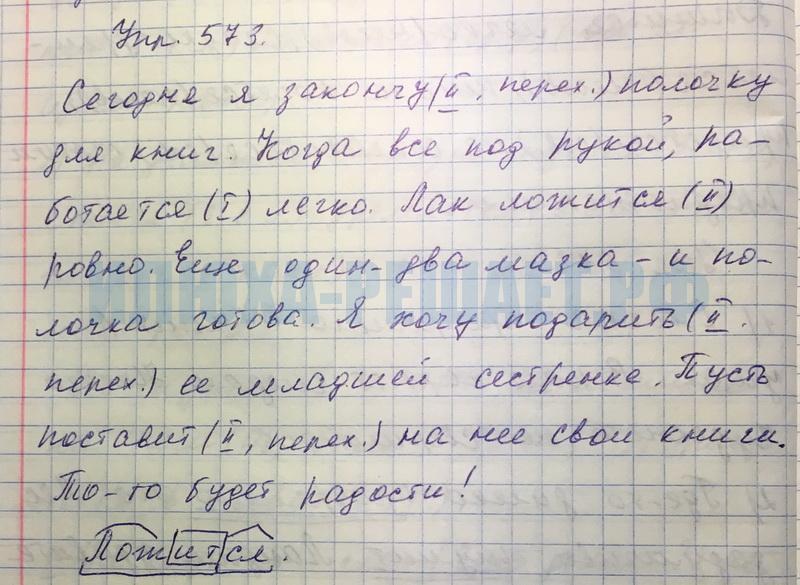 Упр. 573.
Сегодня я закончу (II, перех.) полочку
для книг. Когда все под рукой, ра-
ботается (I) легко. Лак ложится (II)
ровно. Еще один-два мазка - и по-
ИПНХА-РЕШАЕТ.РФ
лочка готова. Я хочу подарить (II.
перех.) ее младшей сестренке. Пусть
поставит (II, перех.) на нее свои книги.
То-то будет радости!
Ложится.